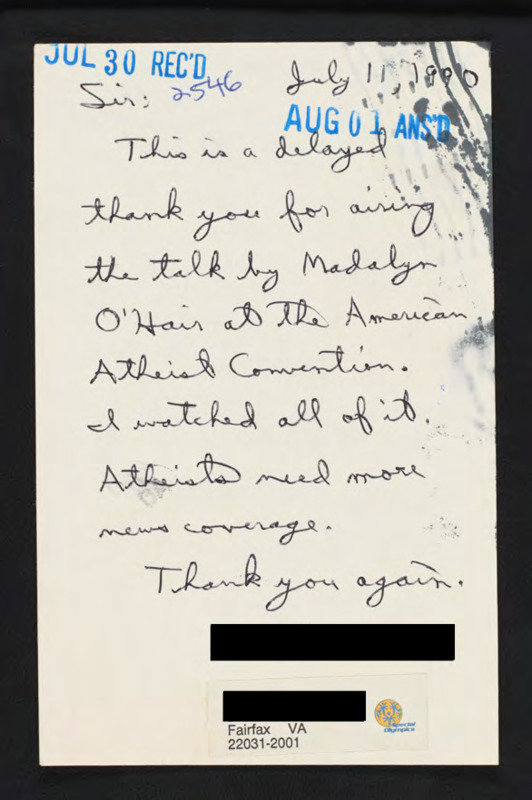 JUL 30 REC'D
July 11, 1990
Sir: 2546
AUG 01 ANS'D
This is a delayed
thank you for airing
the talk by Madalyn
O'Hair at the American
Atheist Convention.
I watched all of it.
Atheists need more
news coverage.
Thank you again.
Special
Olympics
Fairfax VA
22031-2001